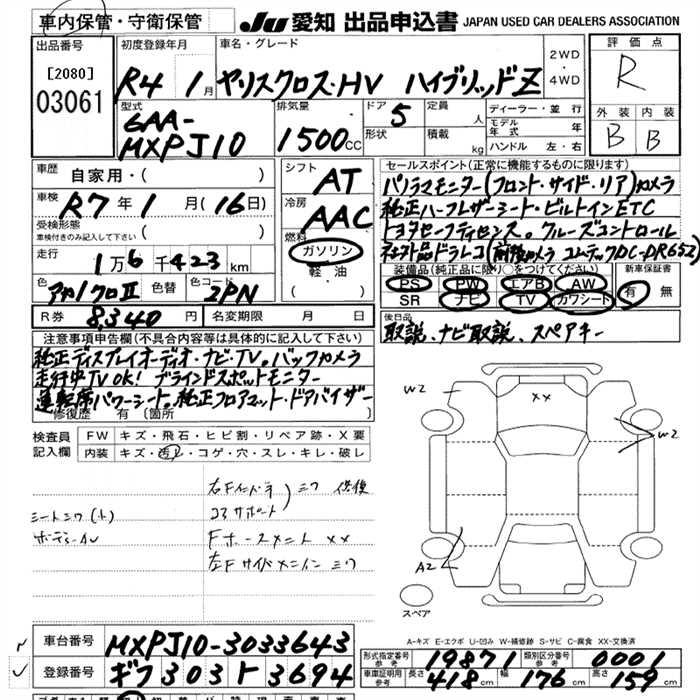 車内保管・守衛保管
JU 愛知 出品申込書 JAPAN USED CAR DEALERS ASSOCIATION
出品番号
[2080]
03061
初度登録年月
R4 1月
車名・グレード
ヤリスクロス・HV ハイブリッドZ
2WD
・
4WD
評価点
R
外装 内装
B B
型式
6AA-
MXPJ10
排気量
1500cc
ドア
5
形状
定員 人
積載 kg
ディーラー・並行
モデル年式 年
ハンドル 左・右
車歴
自家用・( )
車検
R7年1月(16日)
受検形態
車検付きのみ記入して下さい ( )
走行
1万6千423km
色 色替 色コード
2PN
シフト
AT
冷房
AAC
燃料
ガソリン
軽・油
( )
セールスポイント(正常に機能するものに限ります)
パノラマモニター(フロント・サイド・リア)カメラ
純正ハーフレザーシート・ビルトインETC
トヨタセーフティセンス。クルーズコントロール
社外品ドラレコ(前後カメラ コムテックDC-DR652)
装備品(純正品に限り○をつけてください)
PS PW エアB AW
SR ナビ TV カワシート
新車保証書
有 無
R券
8,340円
名変期限 月 日
後日品
取説、ナビ取説、スペアキー
注意事項申告欄(不具合内容等は具体的に記入して下さい)
純正ディスプレイオーディオ・ナビ・TV。バックカメラ
走行中TVOK! ブラインドスポットモニター
運転席パワーシート。純正フロアマット・ドアバイザー
修復歴 有〔箇所 〕
検査員
記入欄
FW キズ・飛石・ヒビ割・リペア跡・X要
内装 キズ・汚れ・コゲ・穴・スレ・キレ・破レ
シートシワ(小)
右Fインドラ
コアサポート
XX
W2
XX
W2
A2
スペア
A-キズ E-エクボ U-凹み W-補修跡 S-サビ C-腐食 XX-交換済
車台番号
MXPJ10-3033643
登録番号
ギフ303ト3694
形式指定番号
参考
19871
類別区分番号
参考
0001
車庫証明用
参考
長さ 418cm 幅 176cm 高さ 159cm